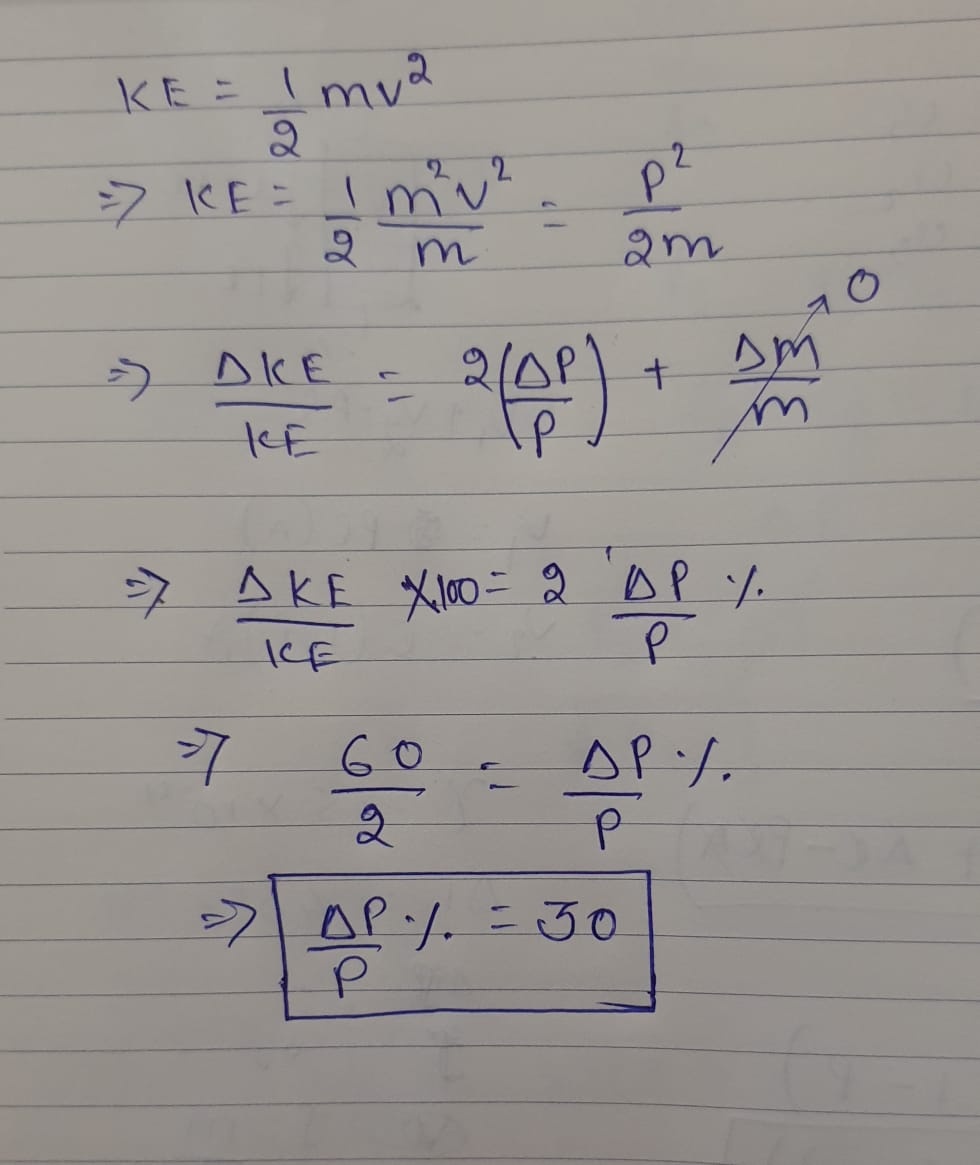 KE = 1/2 mv²
⇒ KE = 1/2 m²v²/m = p²/2m
⇒ ΔKE/KE = 2(ΔP/P) + Δm/m ↗ 0
⇒ ΔKE/KE ×100 = 2 ΔP/P %
⇒ 60/2 = ΔP/P %
⇒ ΔP/P % = 30